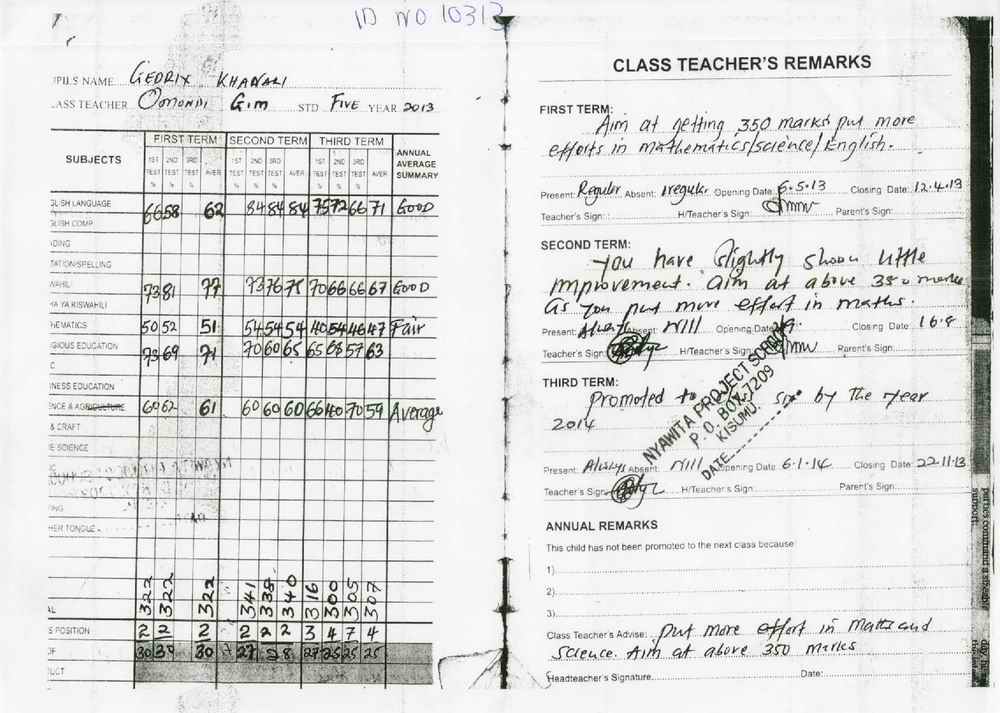 ID NO 10313
PILS NAME GEDRIX KHAWALI
ASS TEACHER Oomondi Gim STD FIVE YEAR 2013
SUBJECTS FIRST TERM SECOND TERM THIRD TERM ANNUAL AVERAGE SUMMARY
1ST TEST % 2ND TEST % 3RD TEST % AVER 1ST TEST % 2ND TEST % 3RD TEST % AVER 1ST TEST % 2ND TEST % 3RD TEST % AVER
GLISH LANGUAGE 66 58 62 84 84 84 75 72 66 71 GOOD
GLISH COMP
DING
TATION/SPELLING
WAHILI 73 81 77 73 76 75 70 66 66 67 GOOD
HA YA KISWAHILI
HEMATICS 50 52 51 54 54 54 40 54 46 47 Fair
GIOUS EDUCATION 73 69 71 70 60 65 65 68 57 63
C
NESS EDUCATION
NCE & AGRICULTURE 60 62 61 60 60 60 66 40 70 59 Average
& CRAFT
E SCIENCE
IC
ING
HER TONGUE
AL 322 322 322 341 338 340 316 300 305 307
S POSITION 2 2 2 2 2 2 3 4 7 4
OF 30 30 30 27 28 27 25 25 25
UCT
CLASS TEACHER'S REMARKS
FIRST TERM:
Aim at getting 350 marks put more
efforts in mathematics/science/English.
Present: Regular Absent: Iregula. Opening Date: 6.5.13 Closing Date: 12.4.13
Teacher's Sign: H/Teacher's Sign: Parent's Sign:
SECOND TERM:
You have slightly shown little
improvement. Aim at above 350 marks
as you put more effort in maths.
Present: Always Absent: Nill Opening Date: Closing Date: 16.8
Teacher's Sign: H/Teacher's Sign: Parent's Sign:
THIRD TERM:
Promoted to six by the year
2014
NYAWITA PROJECT SCHOOL
P. O. BOX 7209
KISUMU.
DATE
Present: Always Absent: Nill Opening Date: 6.1.14 Closing Date: 22.11.13
Teacher's Sign: H/Teacher's Sign: Parent's Sign:
ANNUAL REMARKS
This child has not been promoted to the next class because:
1)
2)
3)
Class Teacher's Advise: Put more effort in Maths and
Science. Aim at above 350 marks
Headteacher's Signature Date: